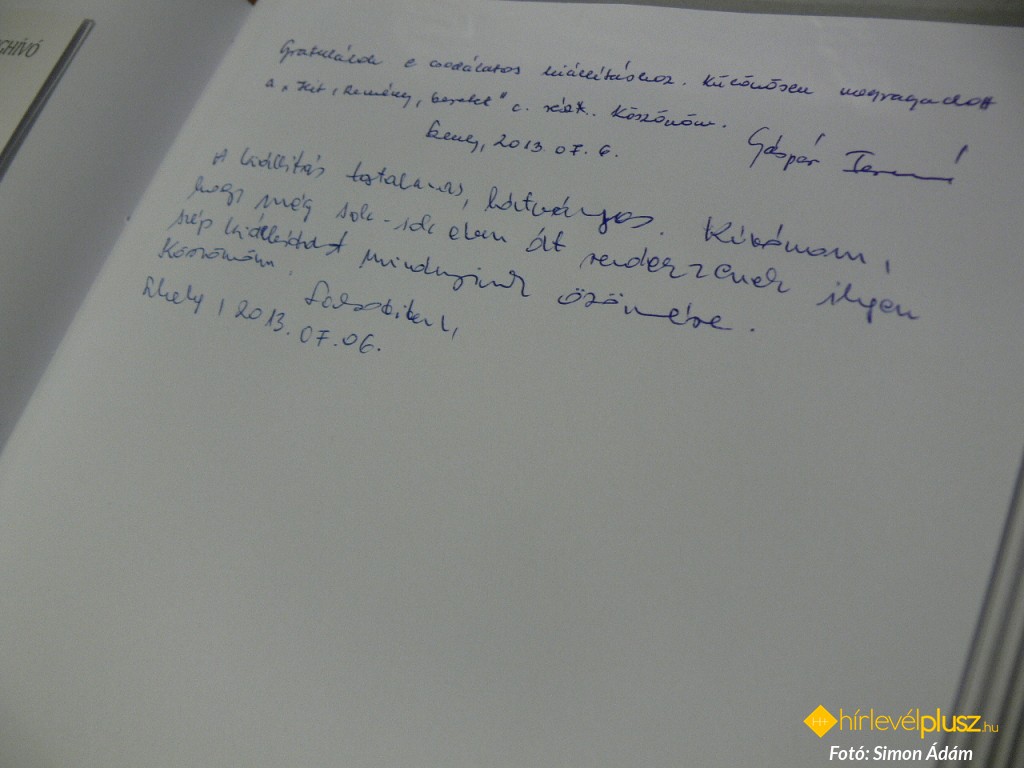 GHÍVÓ
Gratulálok e csodálatos kiállításhoz. Különösen megragadott
a „Hit, remény, szeretet" c. rész. Köszönöm.
2013.07.6.
Gáspár
A kiállítás tartalmas, látványos. Kívánom,
hogy még sok-sok éven át rendezzenek ilyen
szép kiállítást mindnyájunk örömére.
Köszönöm.
2013.07.06.
hírlevélplusz.hu
Fotó: Simon Ádám